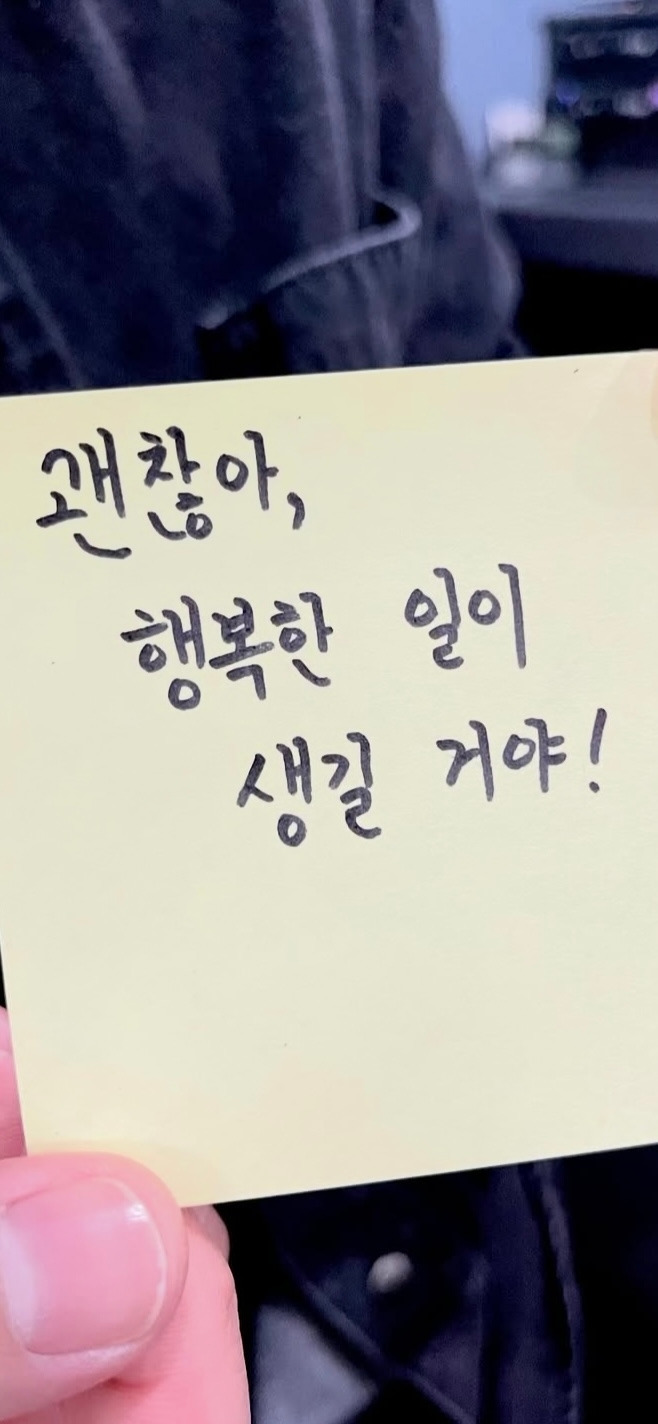 괜찮아,
행복한 일이
생길 거야!